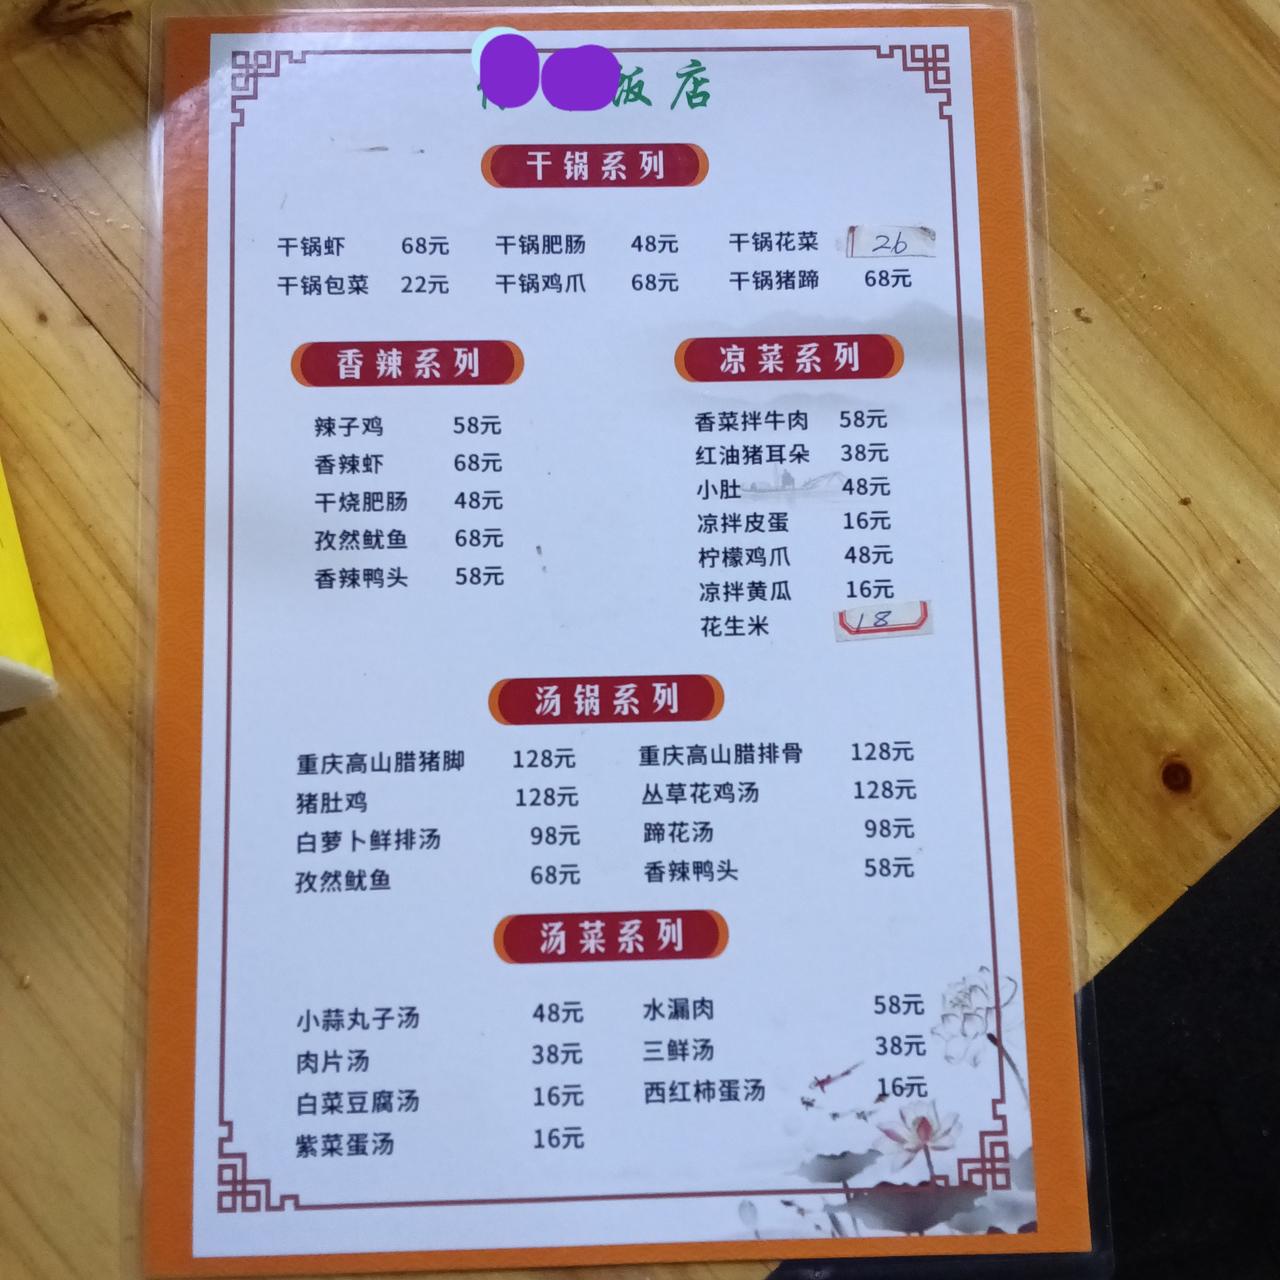 饭店
干锅系列
干锅虾 68元 干锅肥肠 48元 干锅花菜 26
干锅包菜 22元 干锅鸡爪 68元 干锅猪蹄 68元
香辣系列
辣子鸡 58元
香辣虾 68元
干烧肥肠 48元
孜然鱿鱼 68元
香辣鸭头 58元
凉菜系列
香菜拌牛肉 58元
红油猪耳朵 38元
小肚 48元
凉拌皮蛋 16元
柠檬鸡爪 48元
凉拌黄瓜 16元
花生米 18
汤锅系列
重庆高山腊猪脚 128元 重庆高山腊排骨 128元
猪肚鸡 128元 丛草花鸡汤 128元
白萝卜鲜排汤 98元 蹄花汤 98元
孜然鱿鱼 68元 香辣鸭头 58元
汤菜系列
小蒜丸子汤 48元 水漏肉 58元
肉片汤 38元 三鲜汤 38元
白菜豆腐汤 16元 西红柿蛋汤 16元
紫菜蛋汤 16元